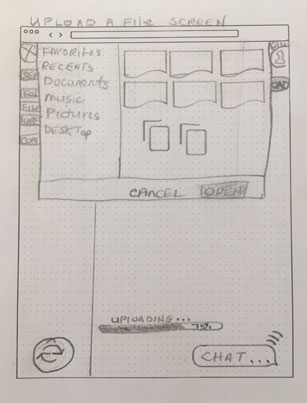 UPLOAD A File SCREEN
FAVORites
RECENTS
DOCUMENTS
MUSIC
PictuRes
DESKTop
CANCEL OPEN
UPLOADING...
75%
CHAT...